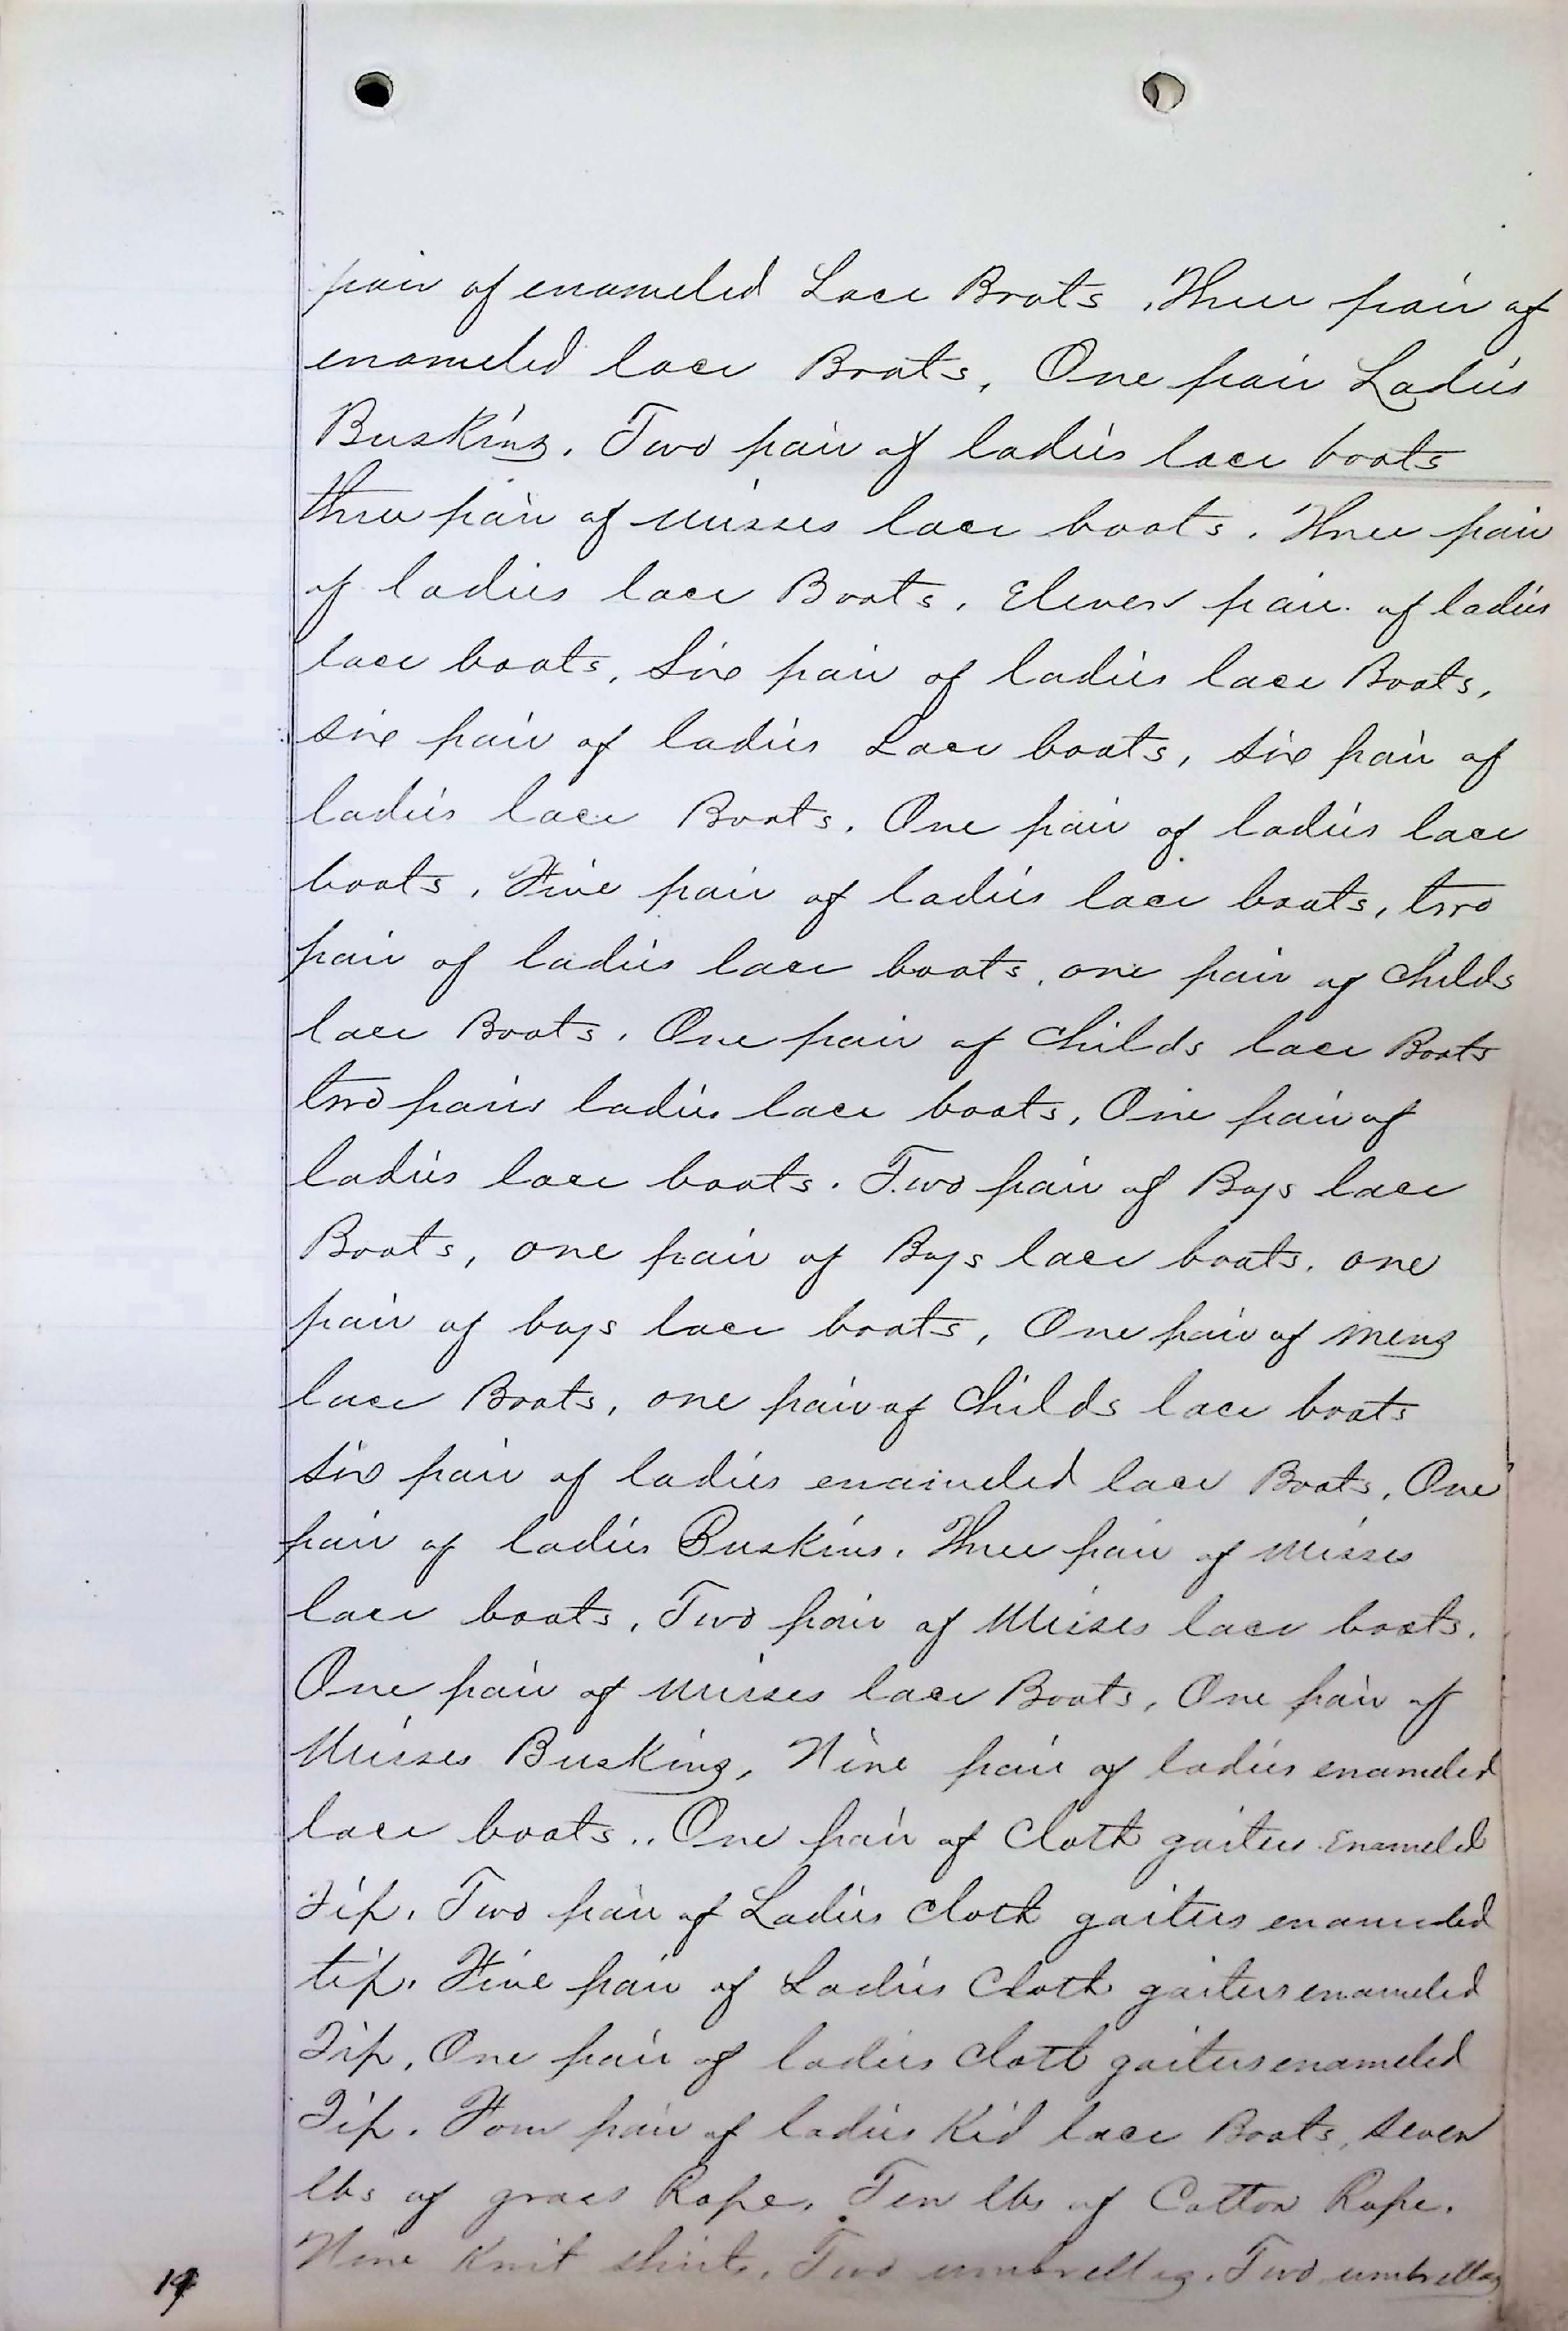 pair of enameled Lace Boots. Three pair of
enameled lace Boots, One pair Ladies
Buskins. Two pair of ladies lace boots
three pair of misses lace boots. Three pair
of ladies lace Boots. Eleven pair of ladies
lace boots, Six pair of ladies lace Boots,
six pair of ladies Lace boots, six pair of
ladies lace Boots. One pair of ladies lace
boots. Five pair of ladies lace boots, two
pair of ladies lace boots, one pair of Childs
lace Boots. One pair of Childs lace Boots
two pairs ladies lace boots, One pair of
ladies lace boots. Two pair of Boys lace
Boots, one pair of Boys lace boots. one
pair of boys lace boots, One pair of mens
lace Boots, one pair of Childs lace boots
six pair of ladies enameled lace Boots, One
pair of ladies Buskins. Three pair of misses
lace boots, Two pair of Misses lace boots.
One pair of misses lace Boots, One pair of
Misses Buskins, Nine pair of ladies enameled
lace boots.. One pair of Cloth gaiters Enameled
Tip. Two pair of Ladies Cloth gaiters enameled
tip. Five pair of Ladies Cloth gaiters enameled
Tip, One pair of ladies Cloth gaiters enameled
Tip. Four pair of ladies Kid lace Boots, seven
lbs of grass Rope. Ten lbs of Cotton Rope.
Nine Knit shirts. Two umbrellas. Two umbrellas